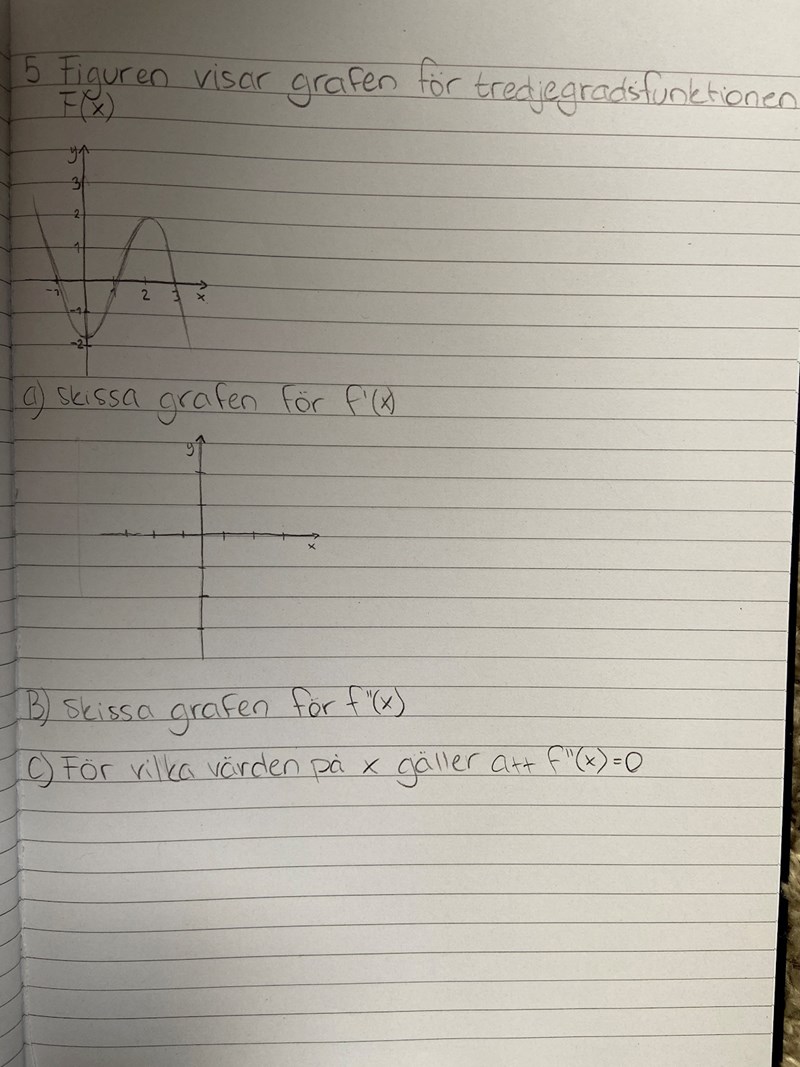 5 Figuren visar grafen för tredjegradsfunktionen
F(x)
y
3
2
1
-1 2 3 x
-1
-2
a) skissa grafen för f'(x)
y
x
B) skissa grafen för f"(x)
C) För vilka värden på x gäller att f"(x)=0